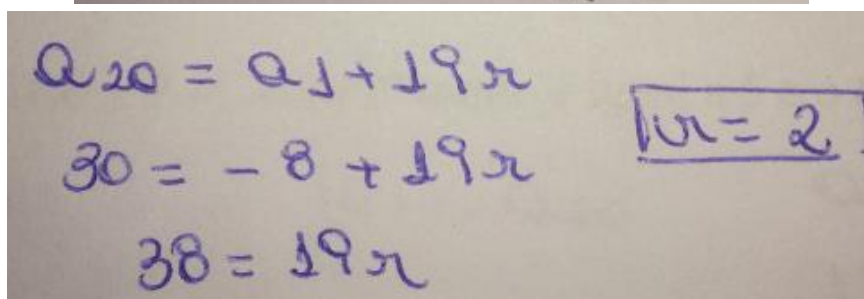 a20 = a1 + 19r
30 = - 8 + 19r
38 = 19r
r = 2